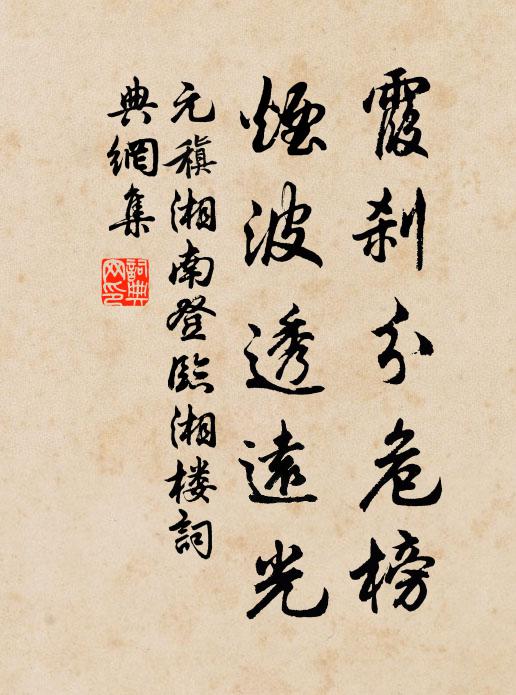 霞刹分危榜
煙波透遠光
元稹湘南登臨湘楼詞
典網集
詞典
网印